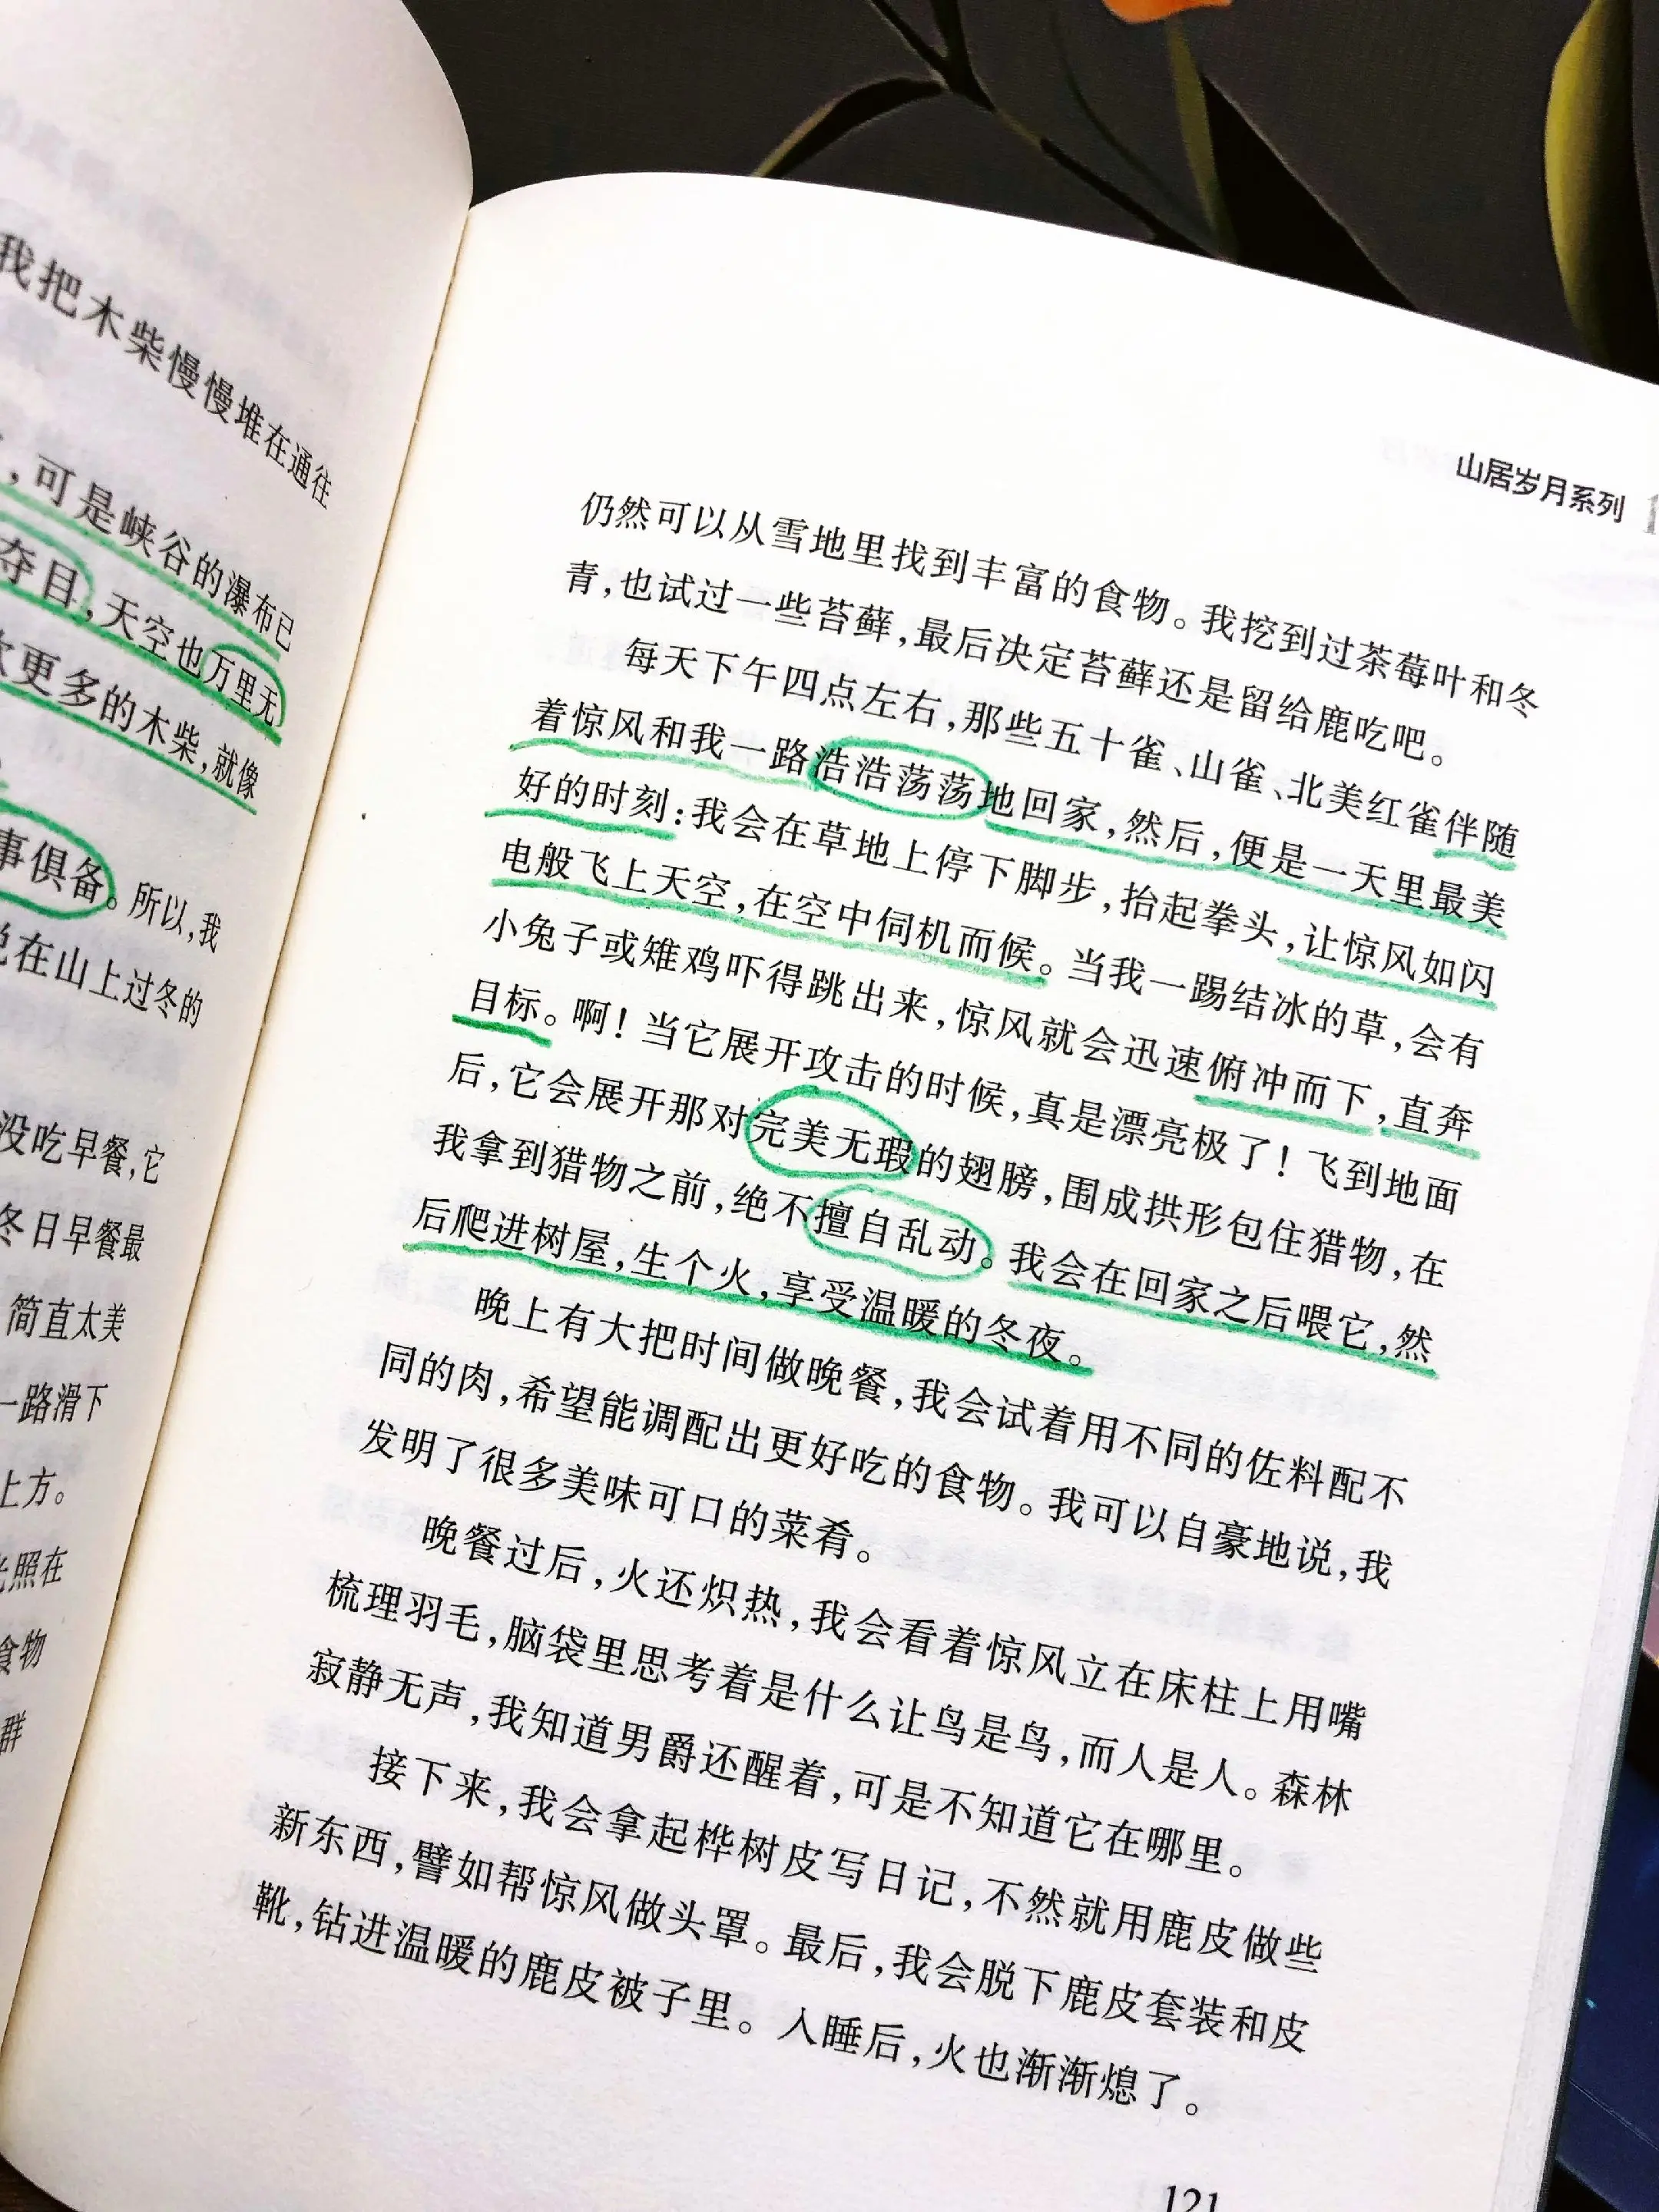 我把木柴慢慢堆在通往
，可是峡谷的瀑布已
夺目，天空也万里无
更多的木柴，就像
事俱备。所以，我
在山上过冬的
没吃早餐，它
冬日早餐最
简直太美
一路滑下
上方。
照在
食物
群
山居岁月系列
仍然可以从雪地里找到丰富的食物。我挖到过茶莓叶和冬
青，也试过一些苔藓，最后决定苔藓还是留给鹿吃吧。
每天下午四点左右，那些五十雀、山雀、北美红雀伴随
着惊风和我一路浩浩荡荡地回家，然后，便是一天里最美
好的时刻：我会在草地上停下脚步，抬起拳头，让惊风如闪
电般飞上天空，在空中伺机而候。当我一踢结冰的草，会有
小兔子或雉鸡吓得跳出来，惊风就会迅速俯冲而下，直奔
目标。啊！当它展开攻击的时候，真是漂亮极了！飞到地面
后，它会展开那对完美无瑕的翅膀，围成拱形包住猎物，在
我拿到猎物之前，绝不擅自乱动。我会在回家之后喂它，然
后爬进树屋，生个火，享受温暖的冬夜。
晚上有大把时间做晚餐，我会试着用不同的佐料配不
同的肉，希望能调配出更好吃的食物。我可以自豪地说，我
发明了很多美味可口的菜肴。
晚餐过后，火还炽热，我会看着惊风立在床柱上用嘴
梳理羽毛，脑袋里思考着是什么让鸟是鸟，而人是人。森林
寂静无声，我知道男爵还醒着，可是不知道它在哪里。
接下来，我会拿起桦树皮写日记，不然就用鹿皮做些
新东西，譬如帮惊风做头罩。最后，我会脱下鹿皮套装和皮
靴，钻进温暖的鹿皮被子里。入睡后，火也渐渐熄了。
121